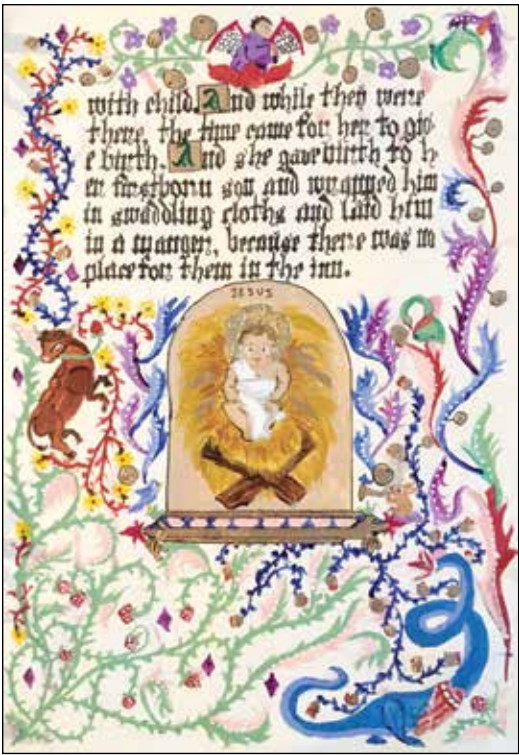 with child. And while they were
there, the time came for her to giv
e birth. And she gave birth to h
er firstborn son and wrapped him
in swaddling cloths and laid him
in a manger, because there was no
place for them in the inn.
JESUS